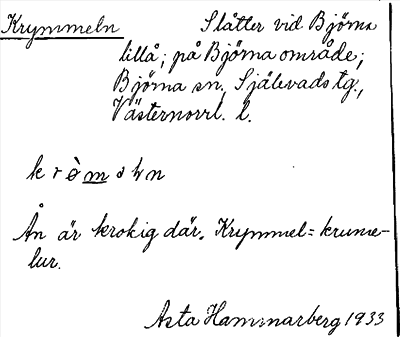 Krymmeln Slåtter vid Björna
lillå; på Björna område;
Björna sn, Själevads tg.,
Västernorrl. l.
k r ò m ə l n
Ån är krokig där. Krymmel = krume-
lur.
Asta Hammarberg 1933